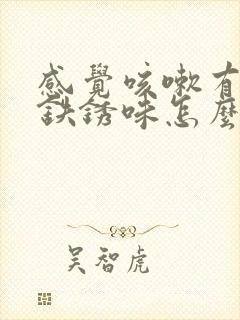 感覺咳嗽有
鉄銹味怎麼
吴智虎